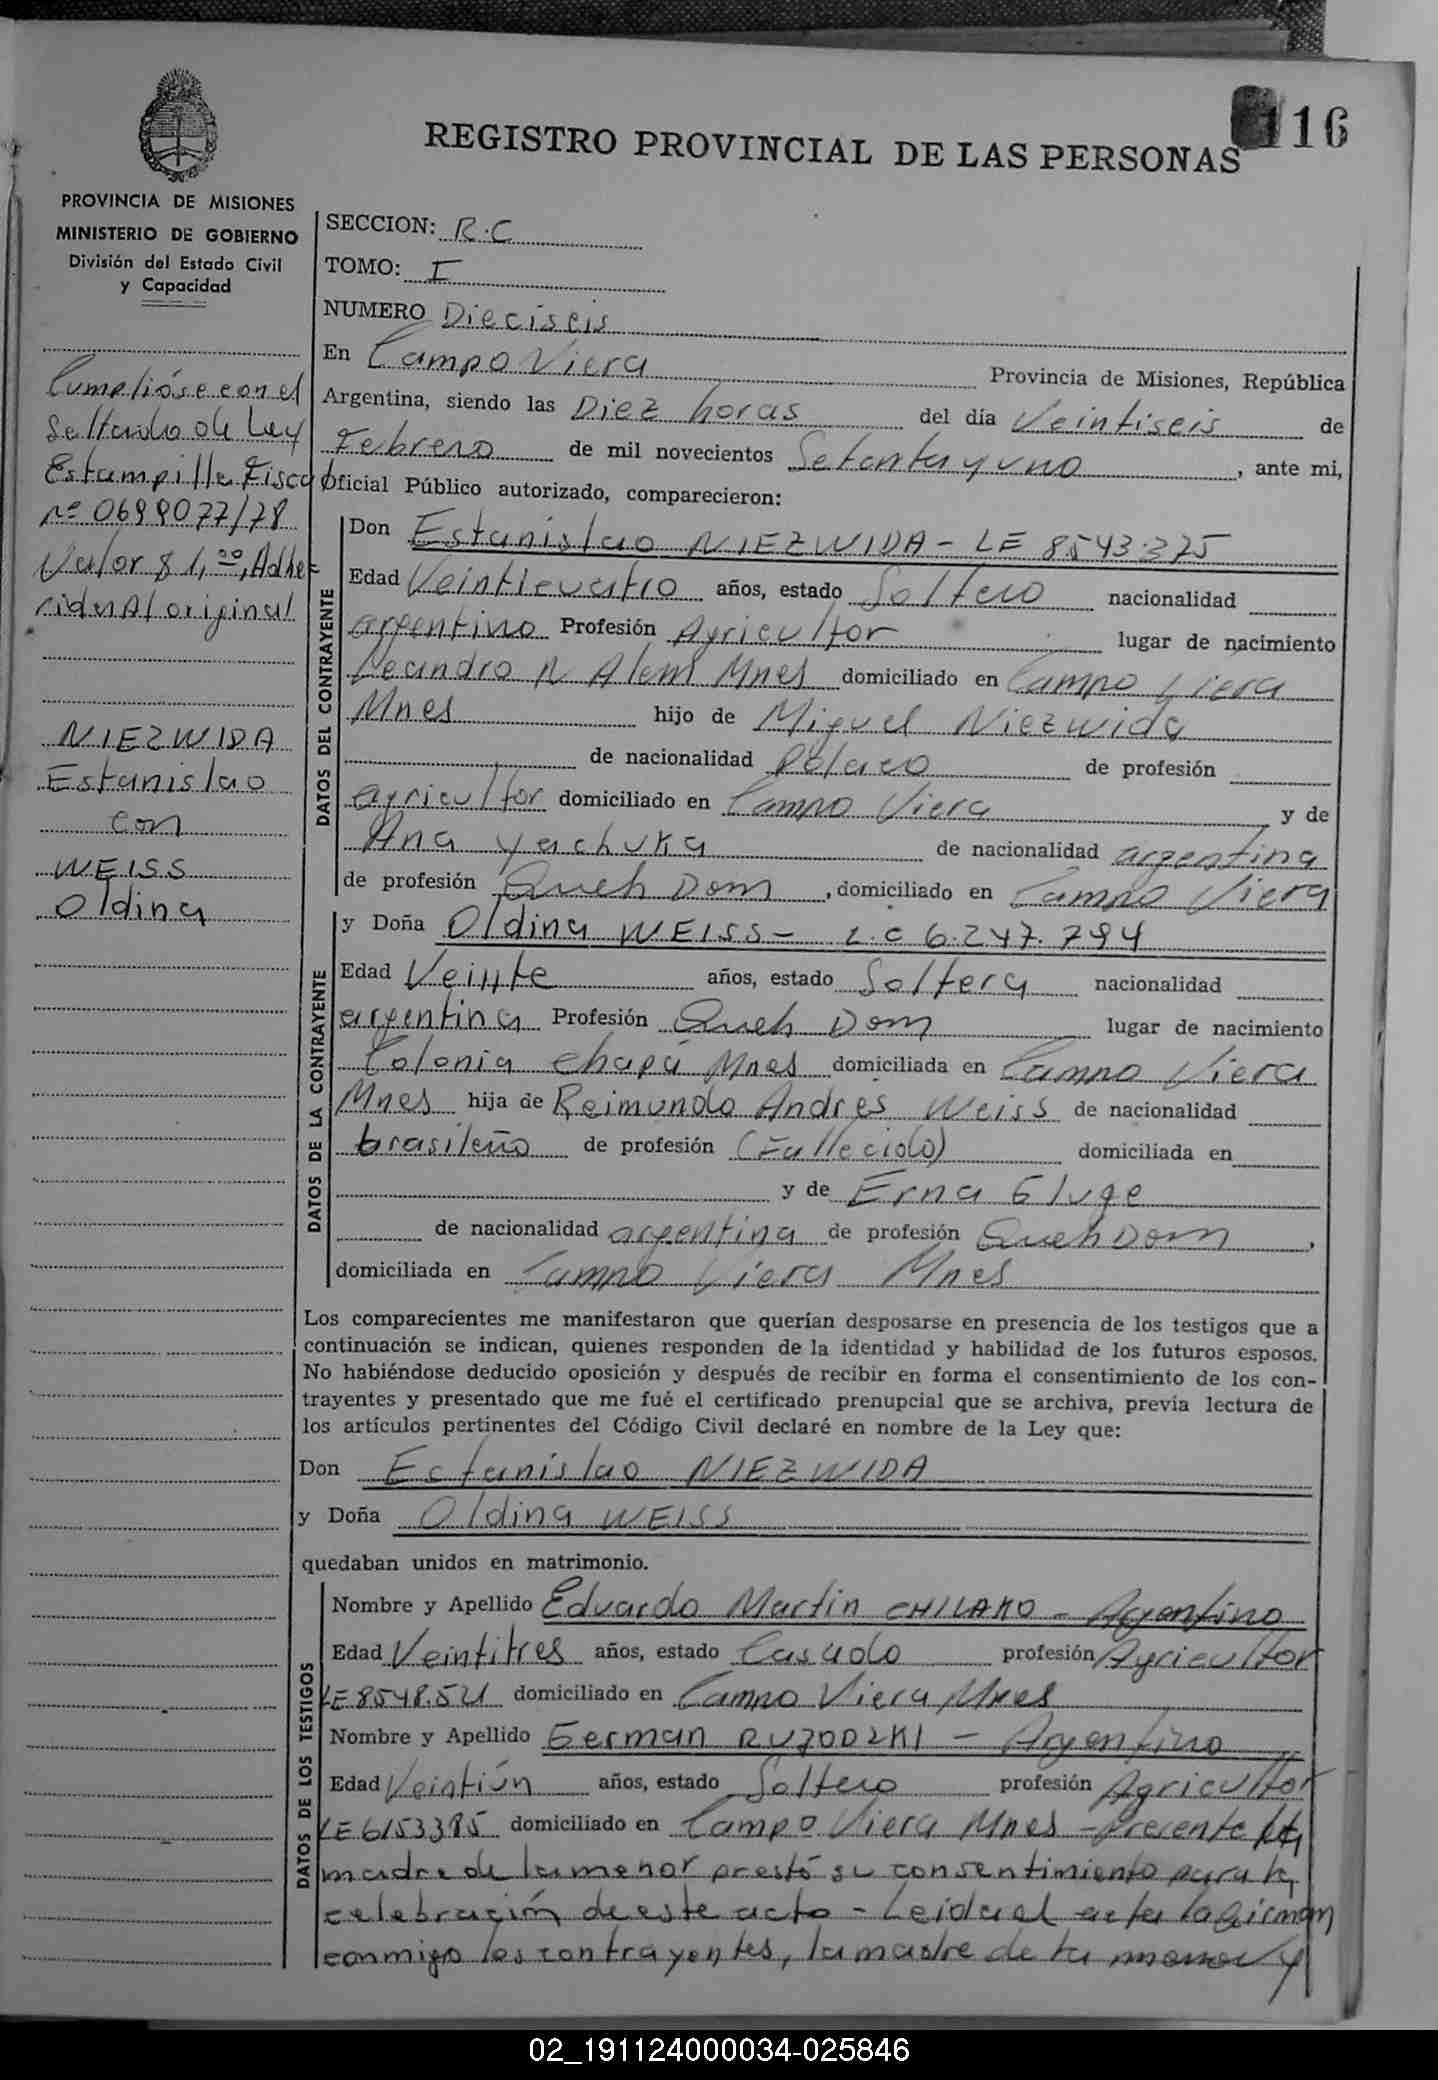 116
REGISTRO PROVINCIAL DE LAS PERSONAS
PROVINCIA DE MISIONES
MINISTERIO DE GOBIERNO
División del Estado Civil
y Capacidad
Cumplióse con el
Sellado de Ley
Estampilla Fiscal
nº 0699077/78
Valor $ 1,00, Adhe-
rida Al original
NIEZWIDA
Estanislao
con
WEISS
Oldina
SECCION: R.C
TOMO: I
NUMERO Dieciseis
En Campo Viera Provincia de Misiones, República
Argentina, siendo las Diez horas del día Veintiseis de
Febrero de mil novecientos Setenta y uno, ante mi,
Oficial Público autorizado, comparecieron:
DATOS DEL CONTRAYENTE
Don Estanislao NIEZWIDA - LE 8543.375
Edad Veinticuatro años, estado Soltero nacionalidad
argentino Profesión Agricultor lugar de nacimiento
Leandro N Alem Mnes domiciliado en Campo Viera
Mnes hijo de Miguel Niezwida
de nacionalidad Polaco de profesión
agricultor domiciliado en Campo Viera y de
Ana Yachuka de nacionalidad argentina
de profesión Queh Dom, domiciliado en Campo Viera
DATOS DE LA CONTRAYENTE
y Doña Oldina WEISS - L.C 6.247.794
Edad Veinte años, estado Soltera nacionalidad
argentina Profesión Queh Dom lugar de nacimiento
Colonia Chapá Mnes domiciliada en Campo Viera
Mnes hija de Reimundo Andrés Weiss de nacionalidad
brasileño de profesión (Fallecido) domiciliada en
y de Erna Gluge
de nacionalidad argentina de profesión Queh Dom,
domiciliada en Campo Viera Mnes
Los comparecientes me manifestaron que querían desposarse en presencia de los testigos que a
continuación se indican, quienes responden de la identidad y habilidad de los futuros esposos.
No habiéndose deducido oposición y después de recibir en forma el consentimiento de los con-
trayentes y presentado que me fué el certificado prenupcial que se archiva, previa lectura de
los artículos pertinentes del Código Civil declaré en nombre de la Ley que:
Don Estanislao NIEZWIDA
y Doña Oldina WEISS
quedaban unidos en matrimonio.
DATOS DE LOS TESTIGOS
Nombre y Apellido Eduardo Martin - Argentino
Edad Veintitres años, estado Casado profesión Agricultor
domiciliado en Campo Viera Mnes
Nombre y Apellido German - Argentino
Edad Veintiún años, estado Soltero profesión Agricultor
LE 6153385 domiciliado en Campo Viera Mnes - Presente la
madre de la menor prestó su consentimiento para la
celebración de este acto - Leida el acta la firman
conmigo los contrayentes, la madre de la menor y
02_191124000034-025846